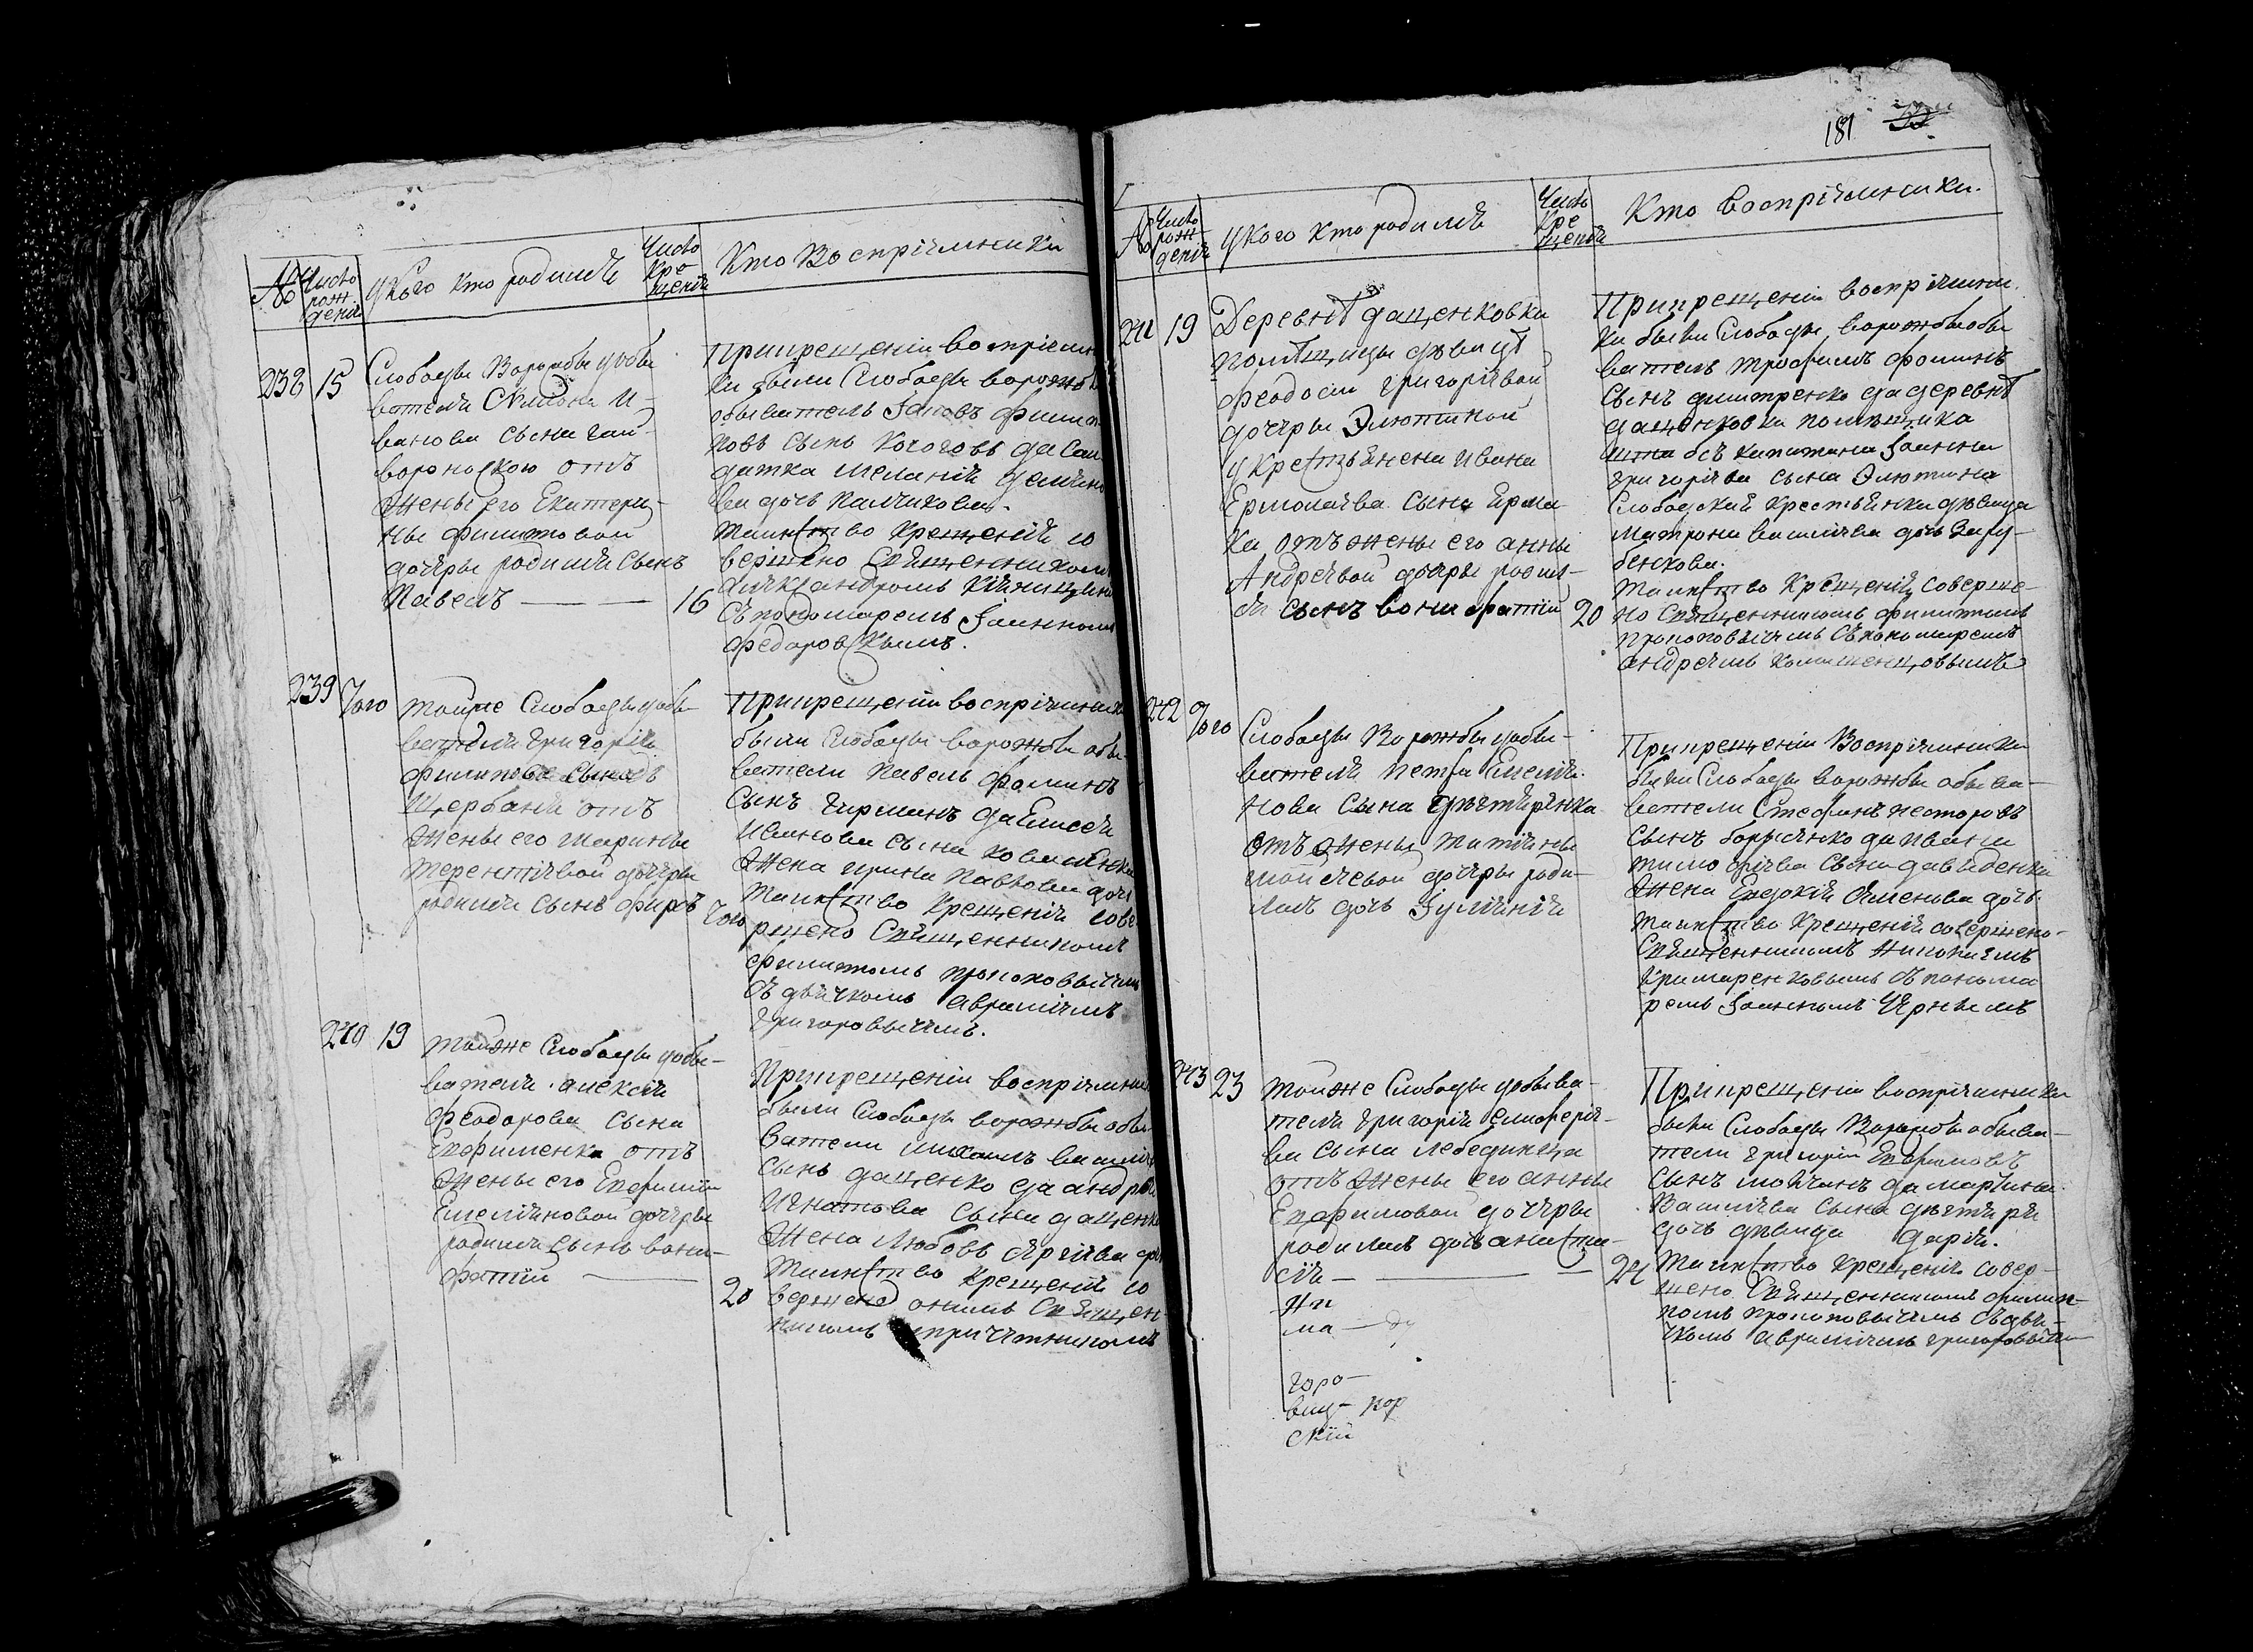 №
Число
рож
денія
У кого кто родился
Число
Кре
щенія
Кто Воспріемники
238
15
Слободы Ворожбы у обы
вателя Симона И-
ванова сына Гай-
воронского отъ
жены его Екатери-
ны Филиповой
дочери родился сынъ
Павелъ — —
16
При крещеніи воспріемни
ки были Слободы Ворожбы
обыватель Іаковъ Филип
повъ сынъ
датка Меланія
ва дочь
Таинство крещенія со
вершено Священникомъ
Александромъ
съ пономаремъ Іоанномъ
Федоровскимъ.
239
Того
Тойже Слободы у обы-
вателя Григорія
Филипова сына
Щербаня отъ
жены его Марины
Терентіевой дочери
родился сынъ Фирсъ
Того
При крещеніи воспріемники
были Слободы Ворожбы обы-
ватели Павелъ Фоминъ
сынъ да Елисея
Иванова сына
жена Ирина Павлова дочь
Таинство крещенія сове
ршено Священникомъ
Филипомъ Прокоповичемъ
съ дьячкомъ Авраміемъ
Григоровичемъ.
240
19
Тойже Слободы у обы-
вателя Алексія
Феодорова сына
Евфименка отъ
жены его Евфиміи
Емеліановой дочери
родился сынъ Вони-
фатій —
20
При крещеніи воспріемники
были Слободы Ворожбы обы-
ватели Михаилъ Василіе
сынъ Даценко да Андрея
Игнатова сына Даценка
жена Любовь дочь
Таинство крещенія со
вершено онимъ Священ-
никомъ и причетникомъ
181
№
Число
рож
денія
У кого кто родился
Число
Кре
щенія
Кто Воспріемники.
241
19
Деревнѣ Даценковки
помѣщицы дѣвицѣ
Феодосіи Григоріевой
дочери Элютиной
у крестьянена Ивана
Ермолаева сына Ерма
ка отъ жены его Анны
Андреевой дочери родил-
ся сынъ Вонифатій
20
При крещеніи воспріемни
ки были Слободы Ворожбы обы
ватель Трофимъ Фоминъ
сынъ Дмитренко да деревнѣ
Даценковки помѣщика
капитана Іоанна
Григоріева сына Элютина
Слободской крестьянки дѣвица
Матрона Василіева дочь Зару-
бенкова.
Таинство Крещенія соверше-
но Священникомъ Филипомъ
Прокоповичемъ съ пономаремъ
Андреемъ
242
Того
Слободы Ворожбы у обы-
вателя Петра Емеліа-
нова сына Дегтяренка
отъ жены Татіаны
Моисеевой дочери роди-
лась дочь Іуліанія
При крещеніи Воспріемники
были Слободы Ворожбы обыва-
ватели Стефанъ Несторовъ
сынъ Борисенко да Ивана
Тимофеева сына Давиденка
жена Евдокія Семенова дочь.
Таинство Крещенія совершено
Священникомъ Николаемъ
Гримаренковымъ съ понома
ремъ Іоанномъ Чернымъ
243
23
Тойже Слободы у обыва-
теля Григорія Елиоферіе-
ва сына Лебединца
отъ жены его Анны
Евфимовой дочери
родилась дочь Анаста-
сія — — —
24
При крещеніи воспріемники
были Слободы Ворожбы обыва-
тели Григорій Евфимовъ
сынъ Молчанъ да Мартина
Василіева сына Дегтяря
дочь дѣвица Дарія.
Таинство Крещенія совер-
шено Священникомъ Филип-
помъ Прокоповичемъ съ дья-
чкомъ Авраміемъ Григоровичемъ
ма —
горо —
виц — кор
скій